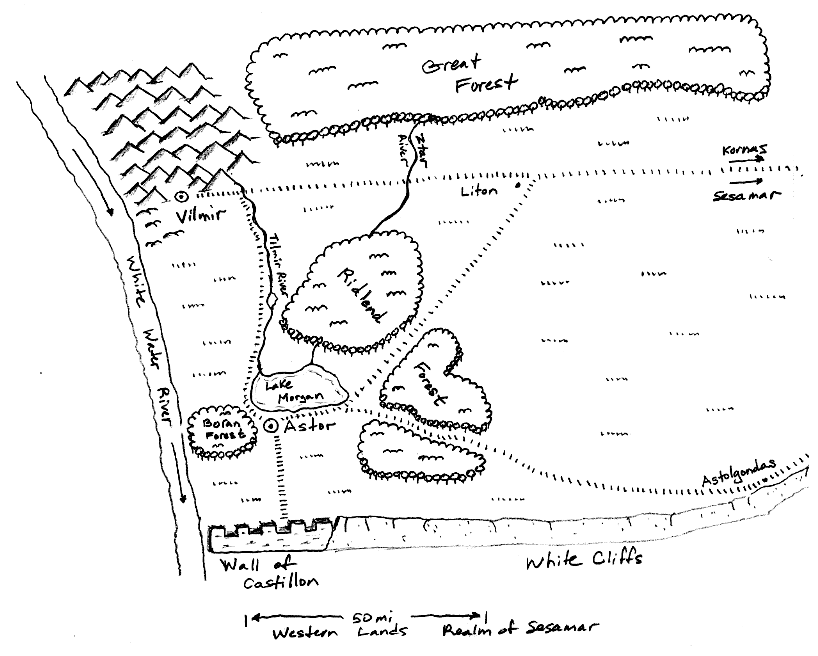 Great
Forest
Ztar
River
Kornas
Liton
Sesamar
Vilmir
Tilmir River
White Water River
Ridland
Forest
Lake
Morgan
Boran
Forest
Astor
Astolgondas
Wall of
Castillon
White Cliffs
50 mi
Western Lands Realm of Sesamar